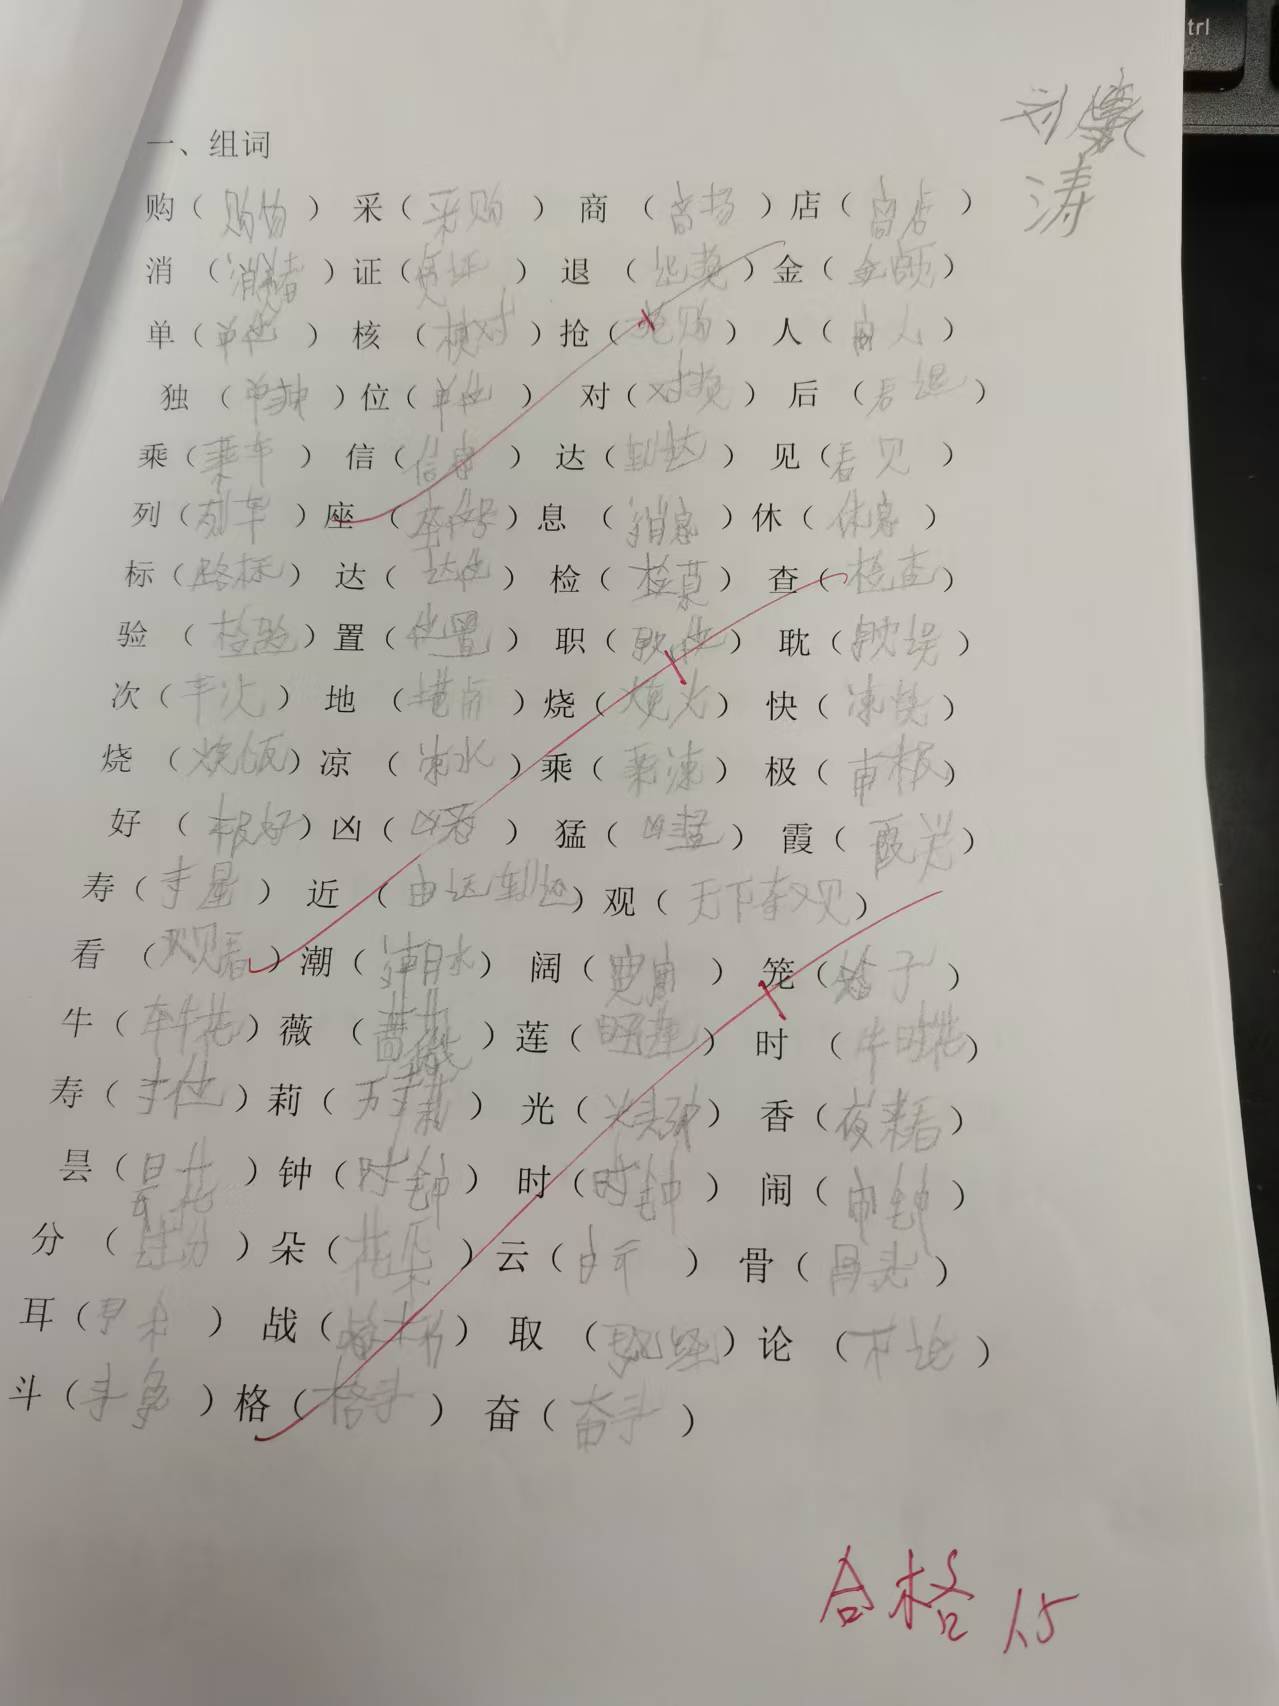 trl
刘
涛
一、组词
购（购物）采（采购）商（商场）店（商店）
消（消费者）证（凭证）退（）金（金额）
单（单位）核（核对）抢（抢购）人（商人）
独（单独）位（单位）对（对换）后（后退）
乘（乘车）信（信息）达（到达）见（看见）
列（列车）座（座位号）息（消息）休（休息）
标（路标）达（达他）检（检票）查（检查）
验（检验）置（位置）职（职位）耽（耽误）
次（车次）地（地点）烧（烧火）快（凉快）
烧（烧饭）凉（凉水）乘（乘凉）极（南极）
好（极好）凶（凶恶）猛（凶猛）霞（霞光）
寿（寿星）近（由远到近）观（天下奇观）
看（观看）潮（潮水）阔（宽阔）笼（笼子）
牛（牵牛花）薇（蔷薇）莲（睡莲）时（午时花）
寿（）莉（万寿莉）光（）香（夜来香）
昙（昙花）钟（时钟）时（时钟）闹（闹钟）
分（过分）朵（花朵）云（白云）骨（骨头）
耳（耳朵）战（）取（取经）论（不论）
斗（斗争）格（格斗）奋（奋斗）
合格 1.5